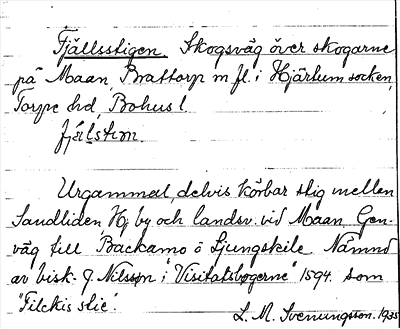 Fjällsstigen. Skogsväg över skogarne
på Maan, Brattorp m fl. i Hjärtum socken,
Torpe hd, Bohus l.
fjälstin.
Urgammal, delvis körbar stig mellan
Sandliden, Hj. by och landsv. vid Maan. Gen-
väg till Backamo o Ljungskile. Nämnd
av bisk. J. Nilsson i "Visitatsbogerne" 1594. som
"Filckis stie".
L. M. Svenungsson. 1935